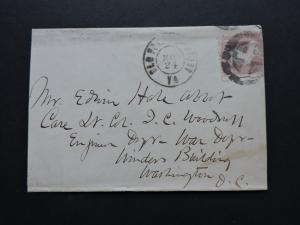 24
VA
Mr. Edwin Hale Abbot
Care Lt. Col. I. C. Woodruff
Engineer Dept - War Dept
Winders Building
Washington
D. C.